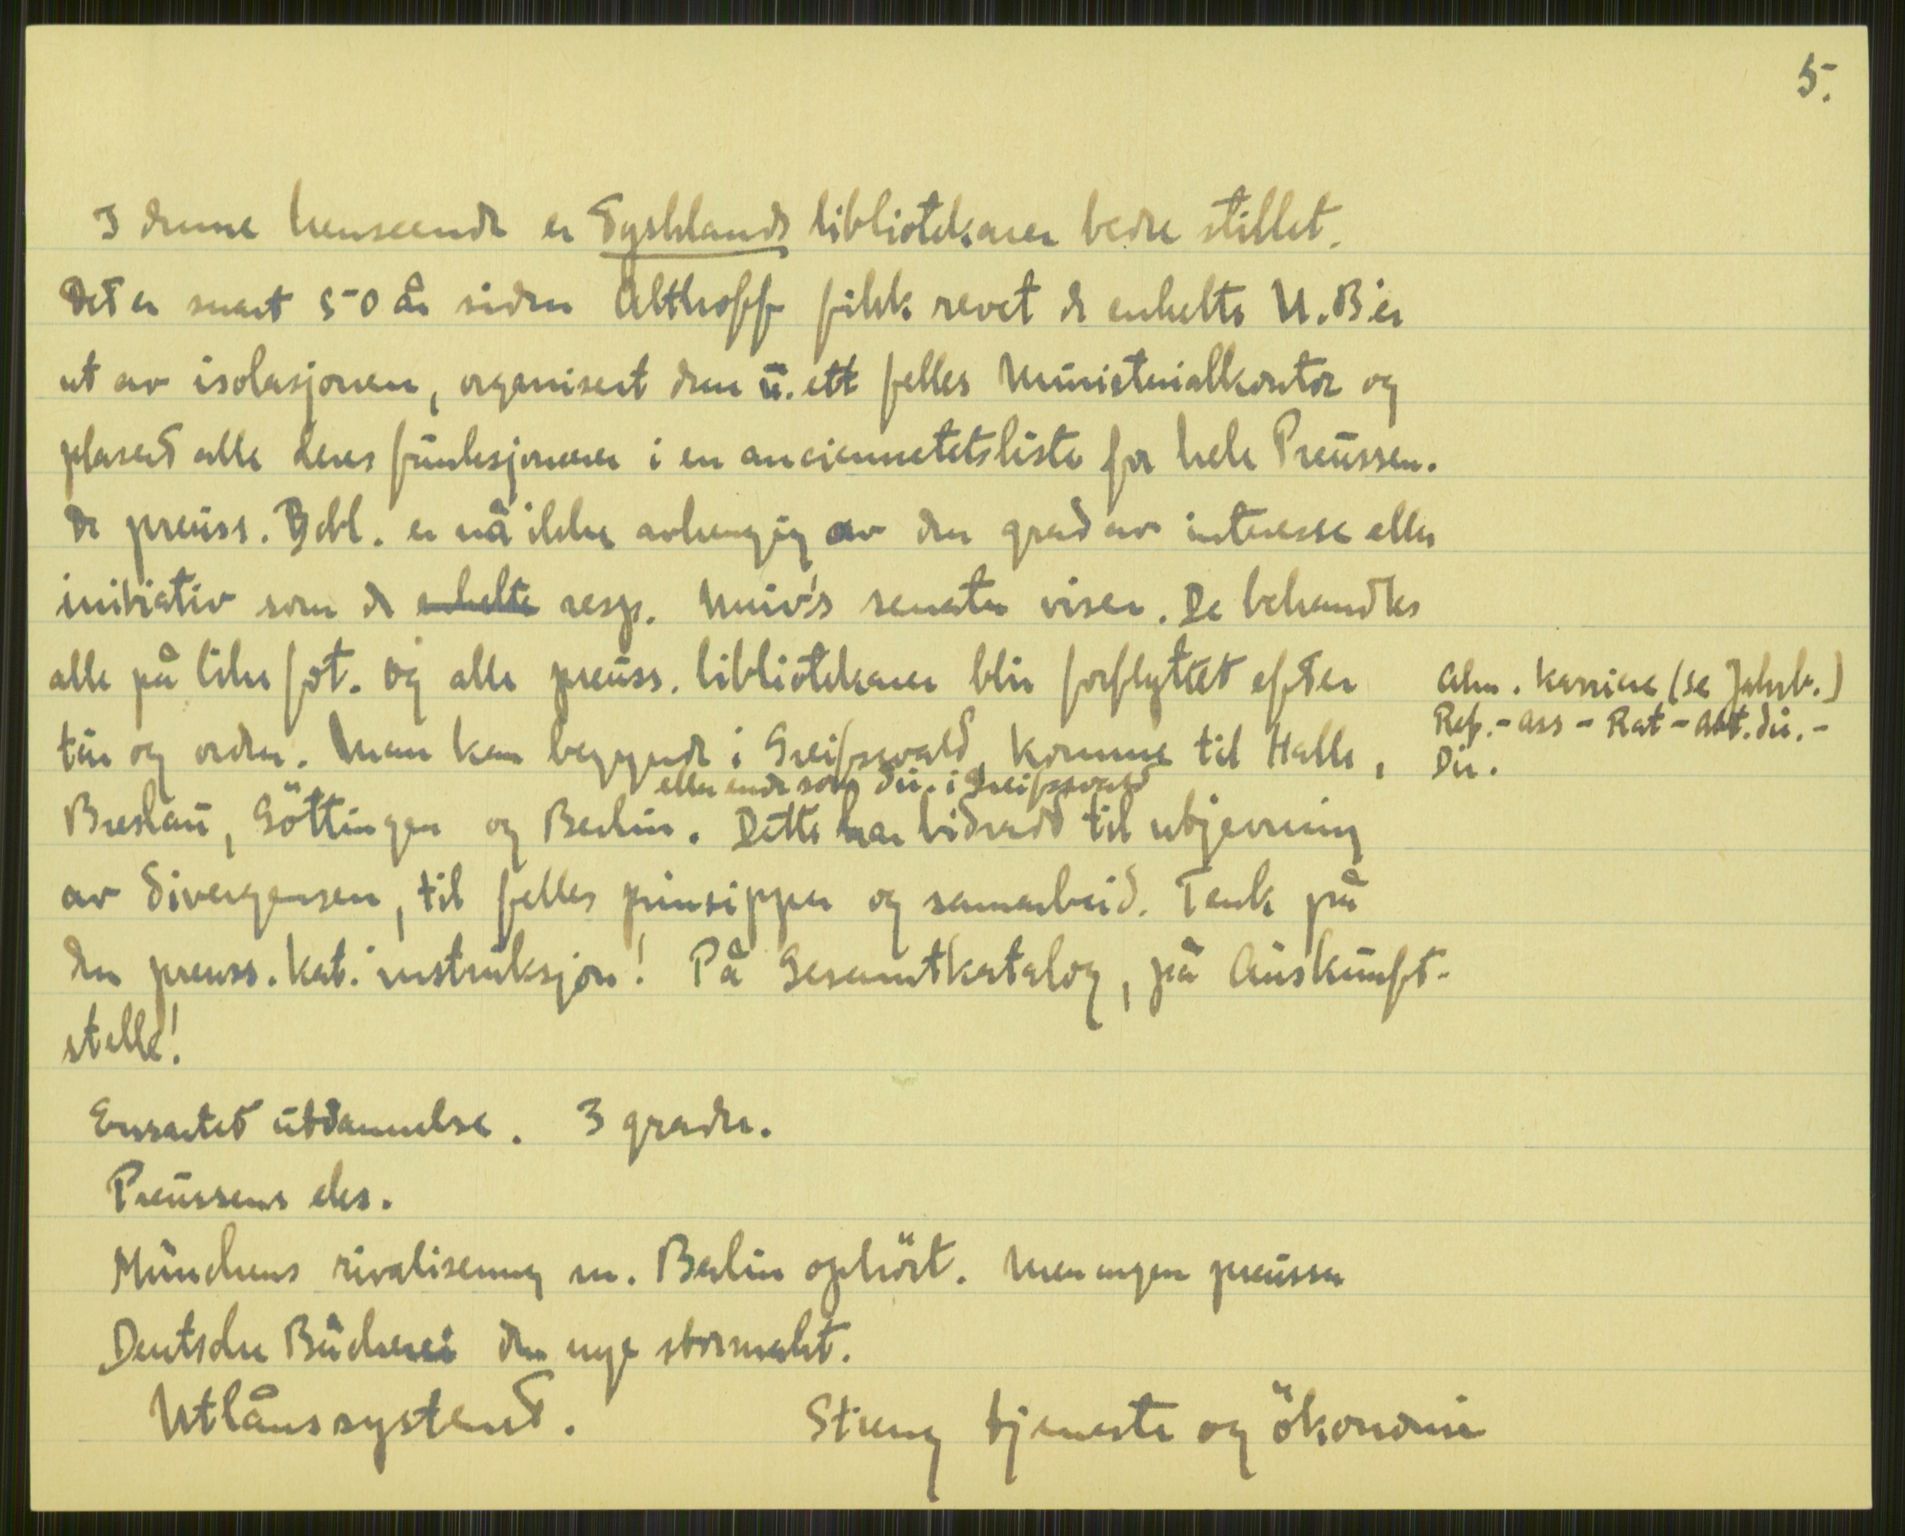 5.
I denne henseende er Tysklands bibliotekarer bedre stillet.
Det er snart 50 år siden Althoff fikk revet de enkelte U.B'er
ut av isolasjonen, organisert dem u. ett felles Ministerialkontor og
plasert alle deres funksjonærer i en anciennetetsliste for hele Preussen.
De preuss. Bibl. er nå ikke avhengig av den grad av interesse eller
initiativ som de enkelte resp. Univ's senater viser. De behandles
alle på like fot. Og alle preuss. bibliotekarer blir forflyttet efter
tur og orden. Man kan begynde i Greifswald, komme til Halle,
Alm. karriere (se Jahrb.)
Ref. - Ass - Rat - Abt. dir. -
Dir.
eller ende som dir. i Greifswald
Breslau, Göttingen og Berlin. Dette har bidradd til utjevning
av divergensen, til felles prinsipper og samarbeid. Tenk på
den preuss. kat. instruksjon! På Gesamtkatalog, på Auskunft-
stelle!
Ensartet utdannelse. 3 grader.
Preussens eks.
Münchens rivalisering m. Berlin ophört. Men ingen preusser
Deutsche Bücherei den nye stormakt.
Utlånssystemet. Streng tjeneste og ökonomi